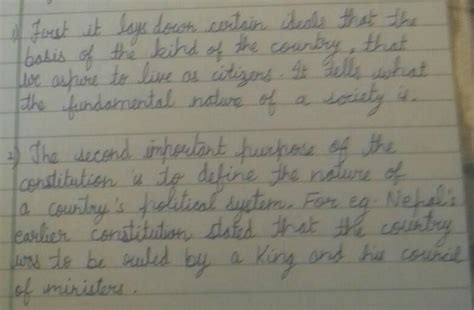 1) First it lays down certain ideals that the
basis of the kind of the country, that
we aspire to live as citizens. It tells what
the fundamental nature of a society is.
2) The second important purpose of the
constitution is to define the nature of
a country's political system. For eg. Nepal's
earlier constitution stated that the country
was to be ruled by a King and his council
of ministers.